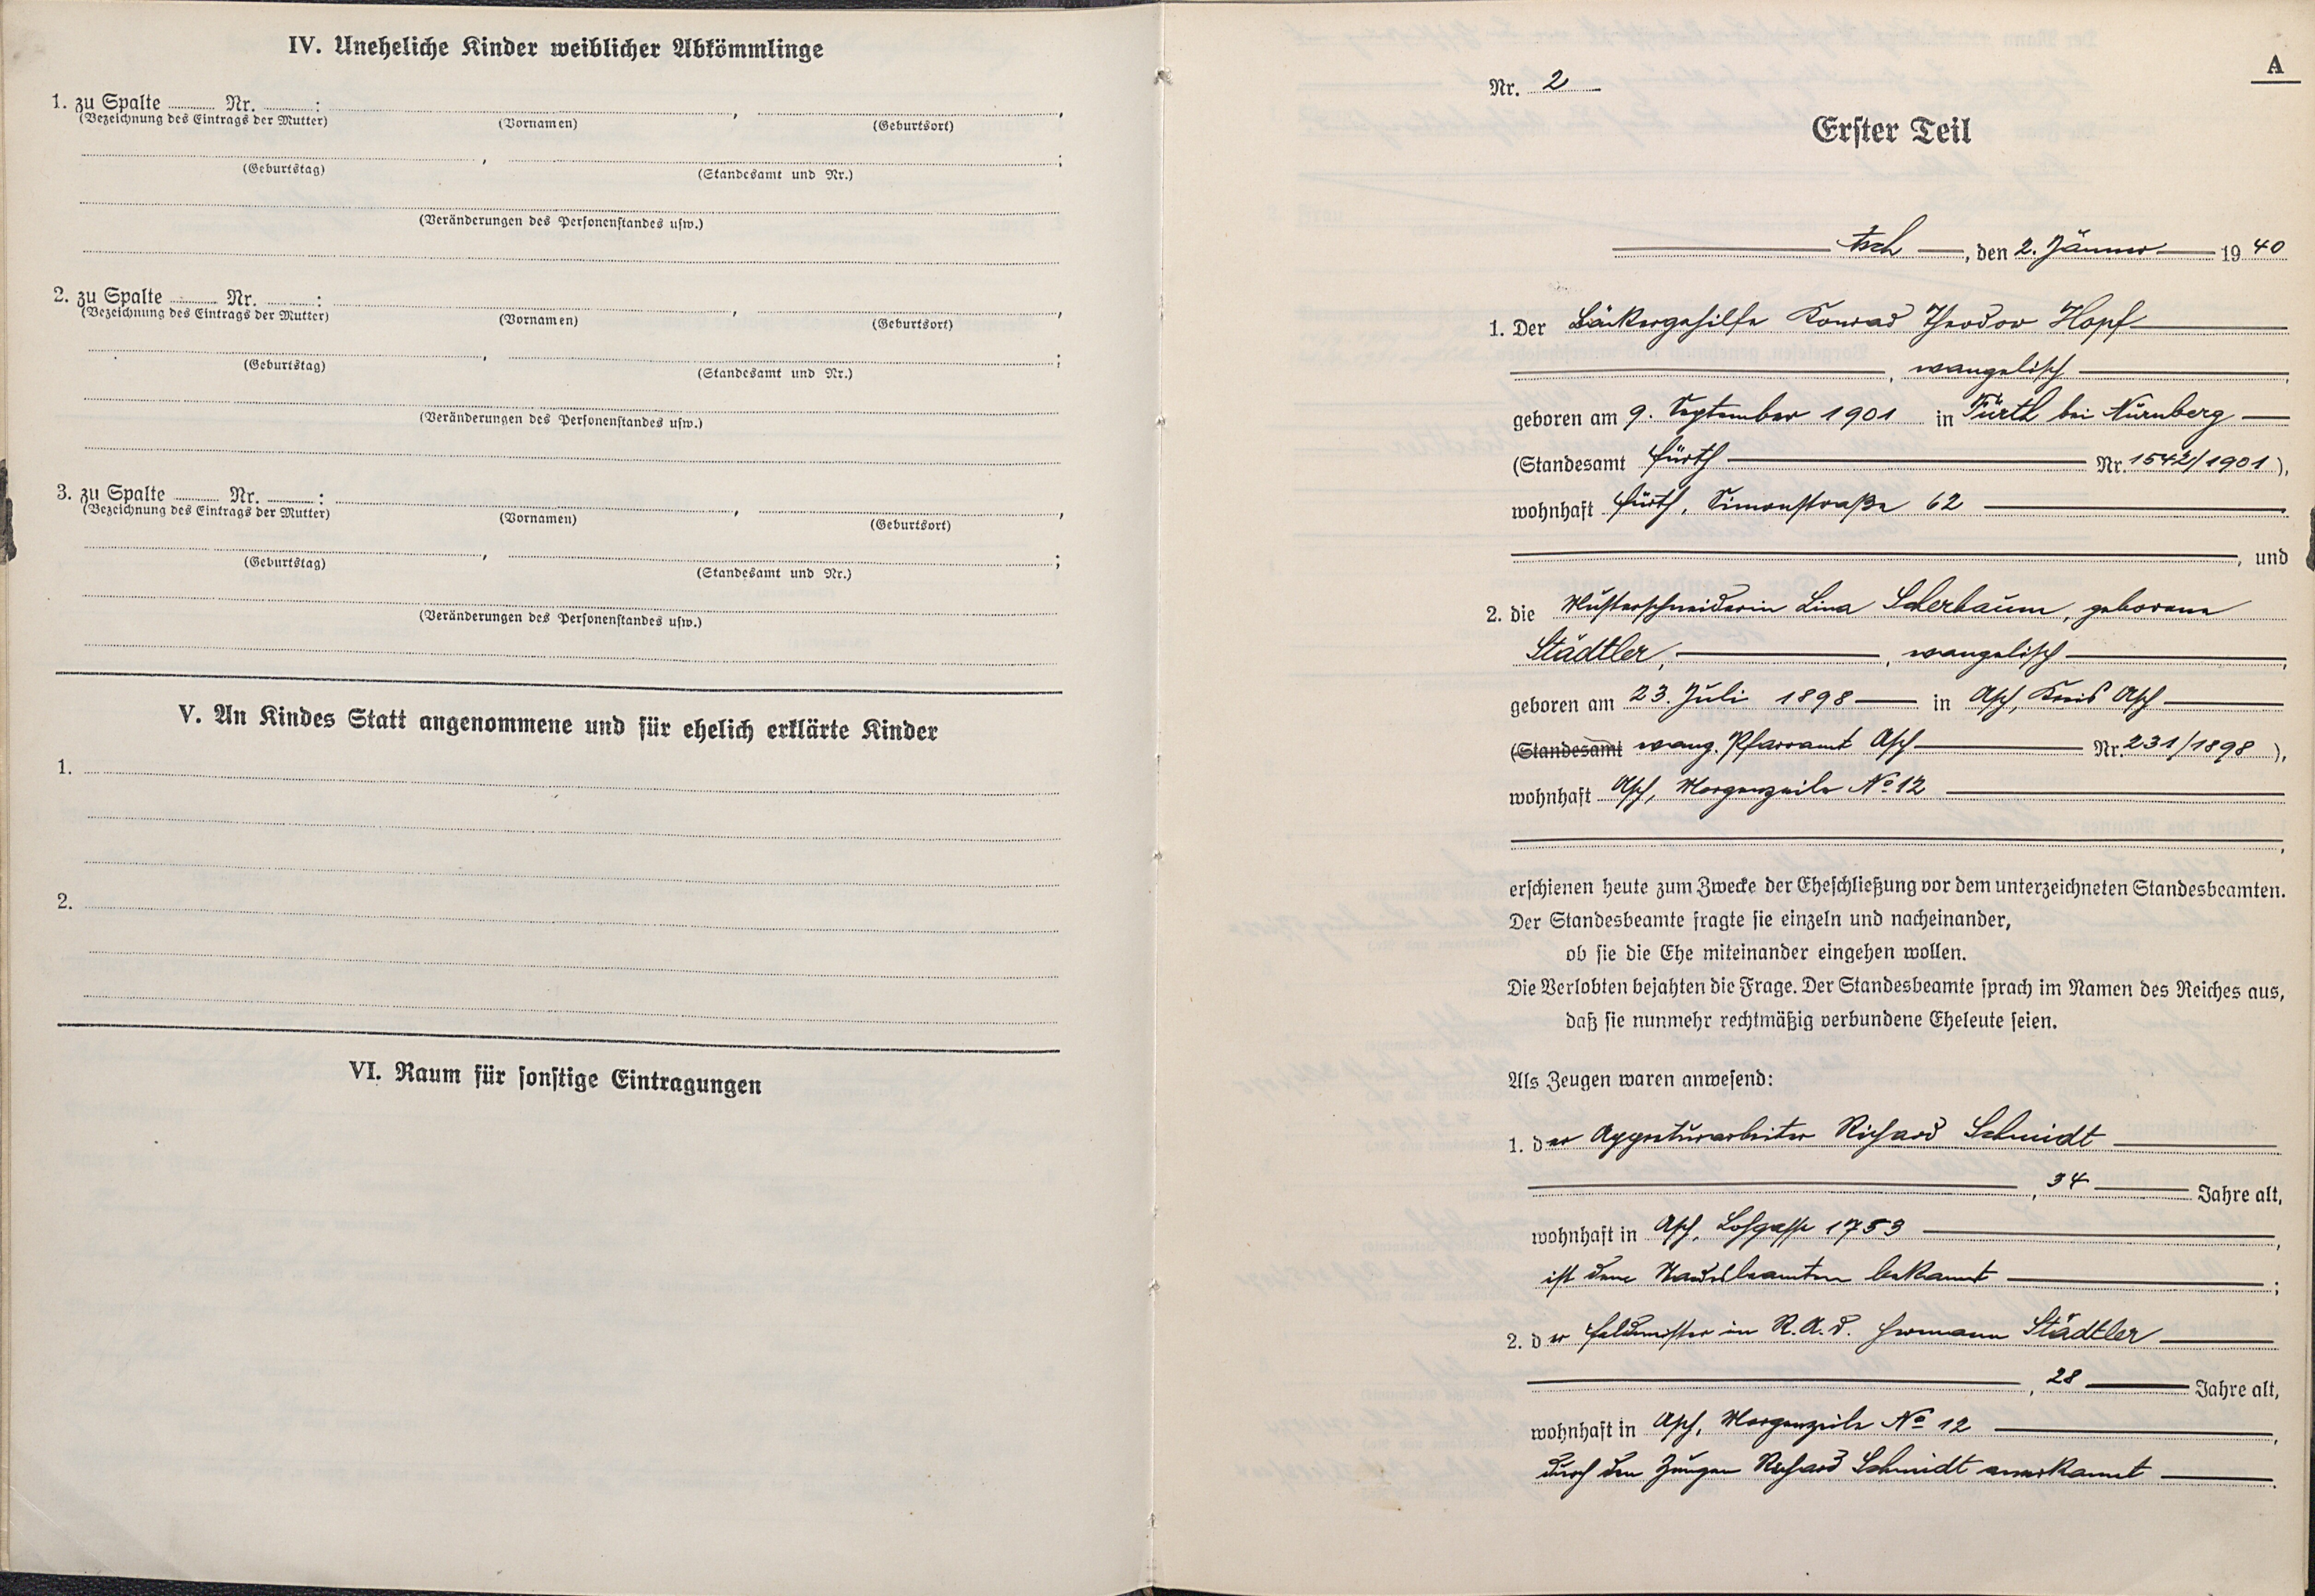 IV. Uneheliche Kinder weiblicher Abkömmlinge
1. zu Spalte ........ Nr. ........:
(Bezeichnung des Eintrags der Mutter) (Vornamen) , (Geburtsort) ,
(Geburtstag) , (Standesamt und Nr.) ;
(Veränderungen des Personenstandes usw.)
2. zu Spalte ........ Nr. ........:
(Bezeichnung des Eintrags der Mutter) (Vornamen) , (Geburtsort) ,
(Geburtstag) , (Standesamt und Nr.) ;
(Veränderungen des Personenstandes usw.)
3. zu Spalte ........ Nr. ........:
(Bezeichnung des Eintrags der Mutter) (Vornamen) , (Geburtsort) ,
(Geburtstag) , (Standesamt und Nr.) ;
(Veränderungen des Personenstandes usw.)
V. An Kindes Statt angenommene und für ehelich erklärte Kinder
1.
2.
VI. Raum für sonstige Eintragungen
A
Nr. 2
Erster Teil
Asch, den 2. Jänner 1940
1. Der Bäckergehilfe Konrad Theodor Hopf
, evangelisch,
geboren am 9. September 1901 in Fürth bei Nürnberg
(Standesamt Fürth Nr. 1542/1901),
wohnhaft Fürth, Simonstraße 62
, und
2. die Musterschneiderin Lina Scherbaum, geborene
Städtler, , evangelisch,
geboren am 23. Juli 1898 in Asch, Kreis Asch
(Standesamt evang. Pfarramt Asch Nr. 231/1898),
wohnhaft Asch, Morgenzeile No 12
,
erschienen heute zum Zwecke der Eheschließung vor dem unterzeichneten Standesbeamten.
Der Standesbeamte fragte sie einzeln und nacheinander,
ob sie die Ehe miteinander eingehen wollen.
Die Verlobten bejahten die Frage. Der Standesbeamte sprach im Namen des Reiches aus,
daß sie nunmehr rechtmäßig verbundene Eheleute seien.
Als Zeugen waren anwesend:
1. der Appreturarbeiter Richard Schmidt
, 34 Jahre alt,
wohnhaft in Asch, Lohgasse 1753,
ist dem Standesbeamten bekannt;
2. der Feldmeister im R.A.D. Hermann Städtler
, 28 Jahre alt,
wohnhaft in Asch, Morgenzeile No 12,
durch den Zeugen Richard Schmidt anerkannt.